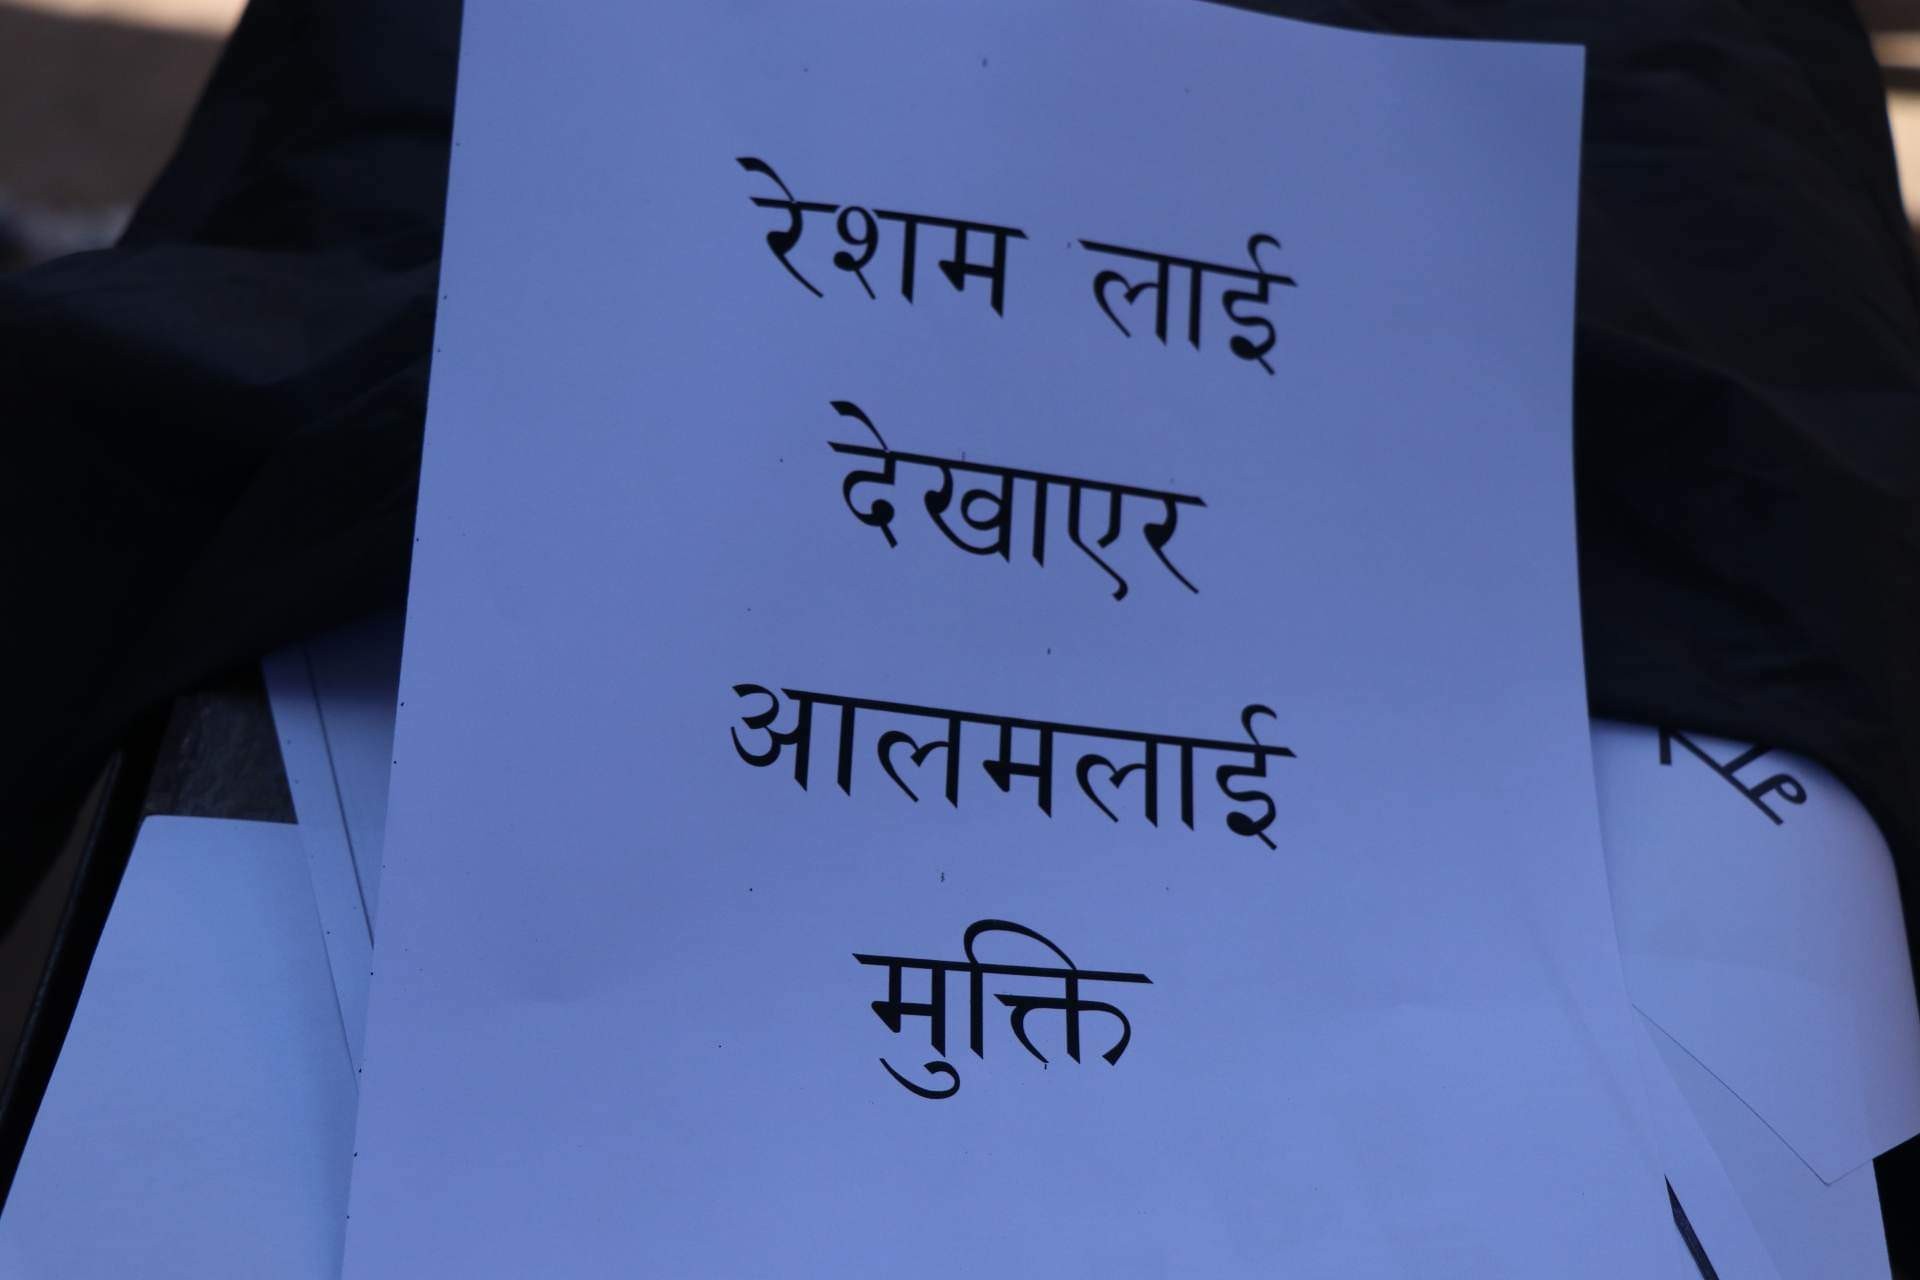 रेशम लाई
देखाएर
आलमलाई
मुक्ति